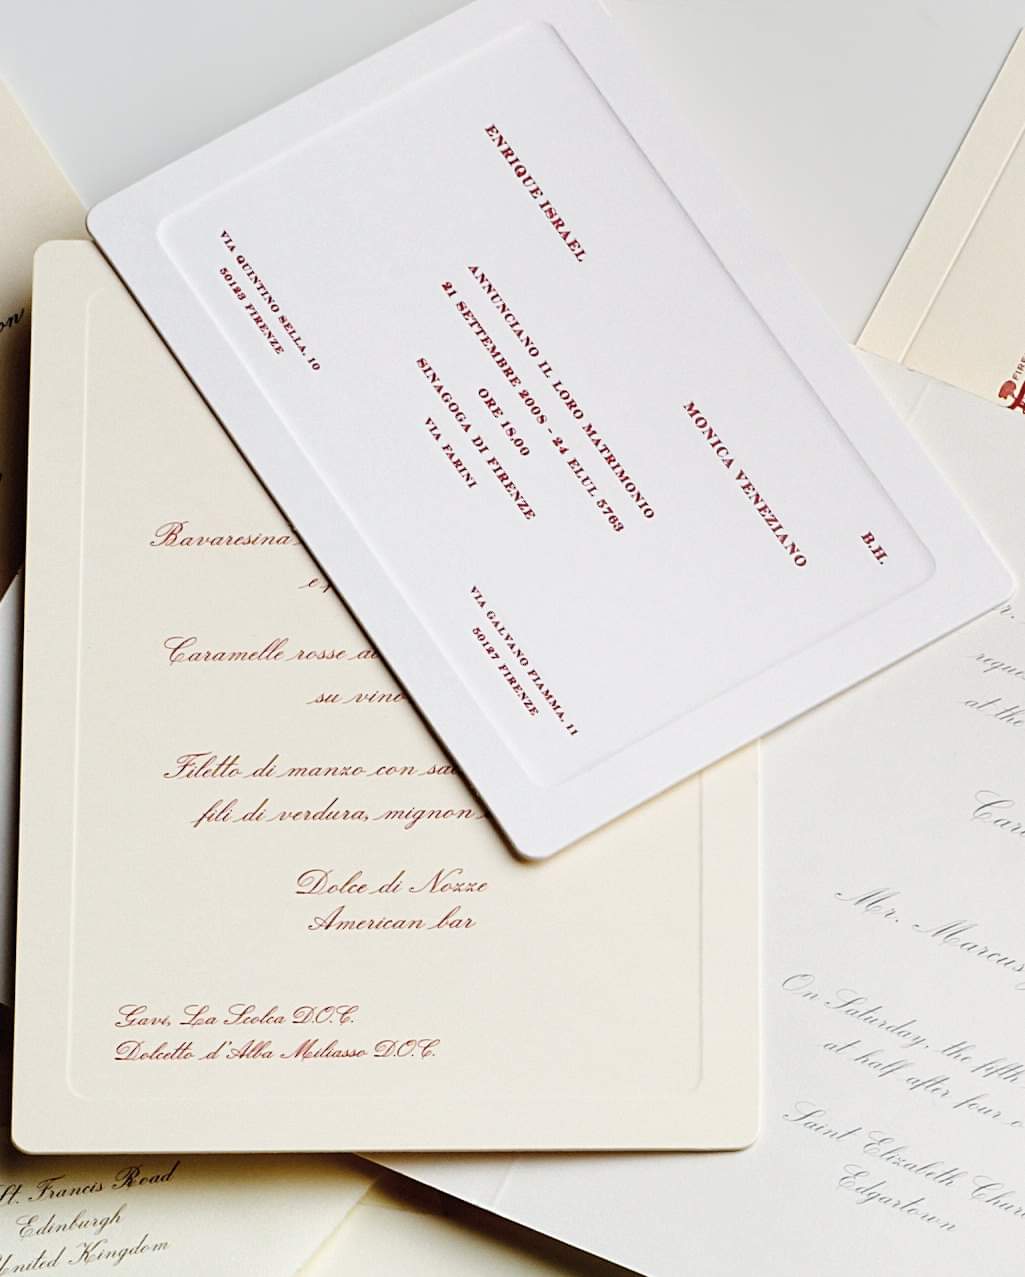 B.H.
ENRIQUE ISRAEL
MONICA VENEZIANO
ANNUNCIANO IL LORO MATRIMONIO
21 SETTEMBRE 2008 - 24 ELUL 5763
ORE 18.00
SINAGOGA DI FIRENZE
VIA FARINI
VIA QUINTINO SELLA, 10
50123 FIRENZE
VIA GALVANO FIAMMA, 11
50127 FIRENZE
Bavaresina
e
Caramelle rosse
su vino
Filetto di manzo con
fili di verdura, mignon
Dolce di Nozze
American bar
Gavi, La Scolca D.O.C.
Dolcetto d'Alba Miliasso D.O.C.
St. Francis Road
Edinburgh
United Kingdom
at the
Mr. Marcus
On Saturday, the fifth
at half after four
Saint Elizabeth
Edgartown